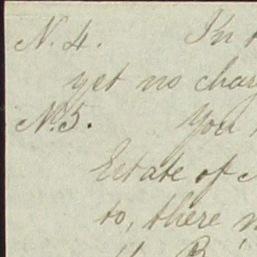 N. 4. In
yet no char
No. 5. You
Estate of
to, there